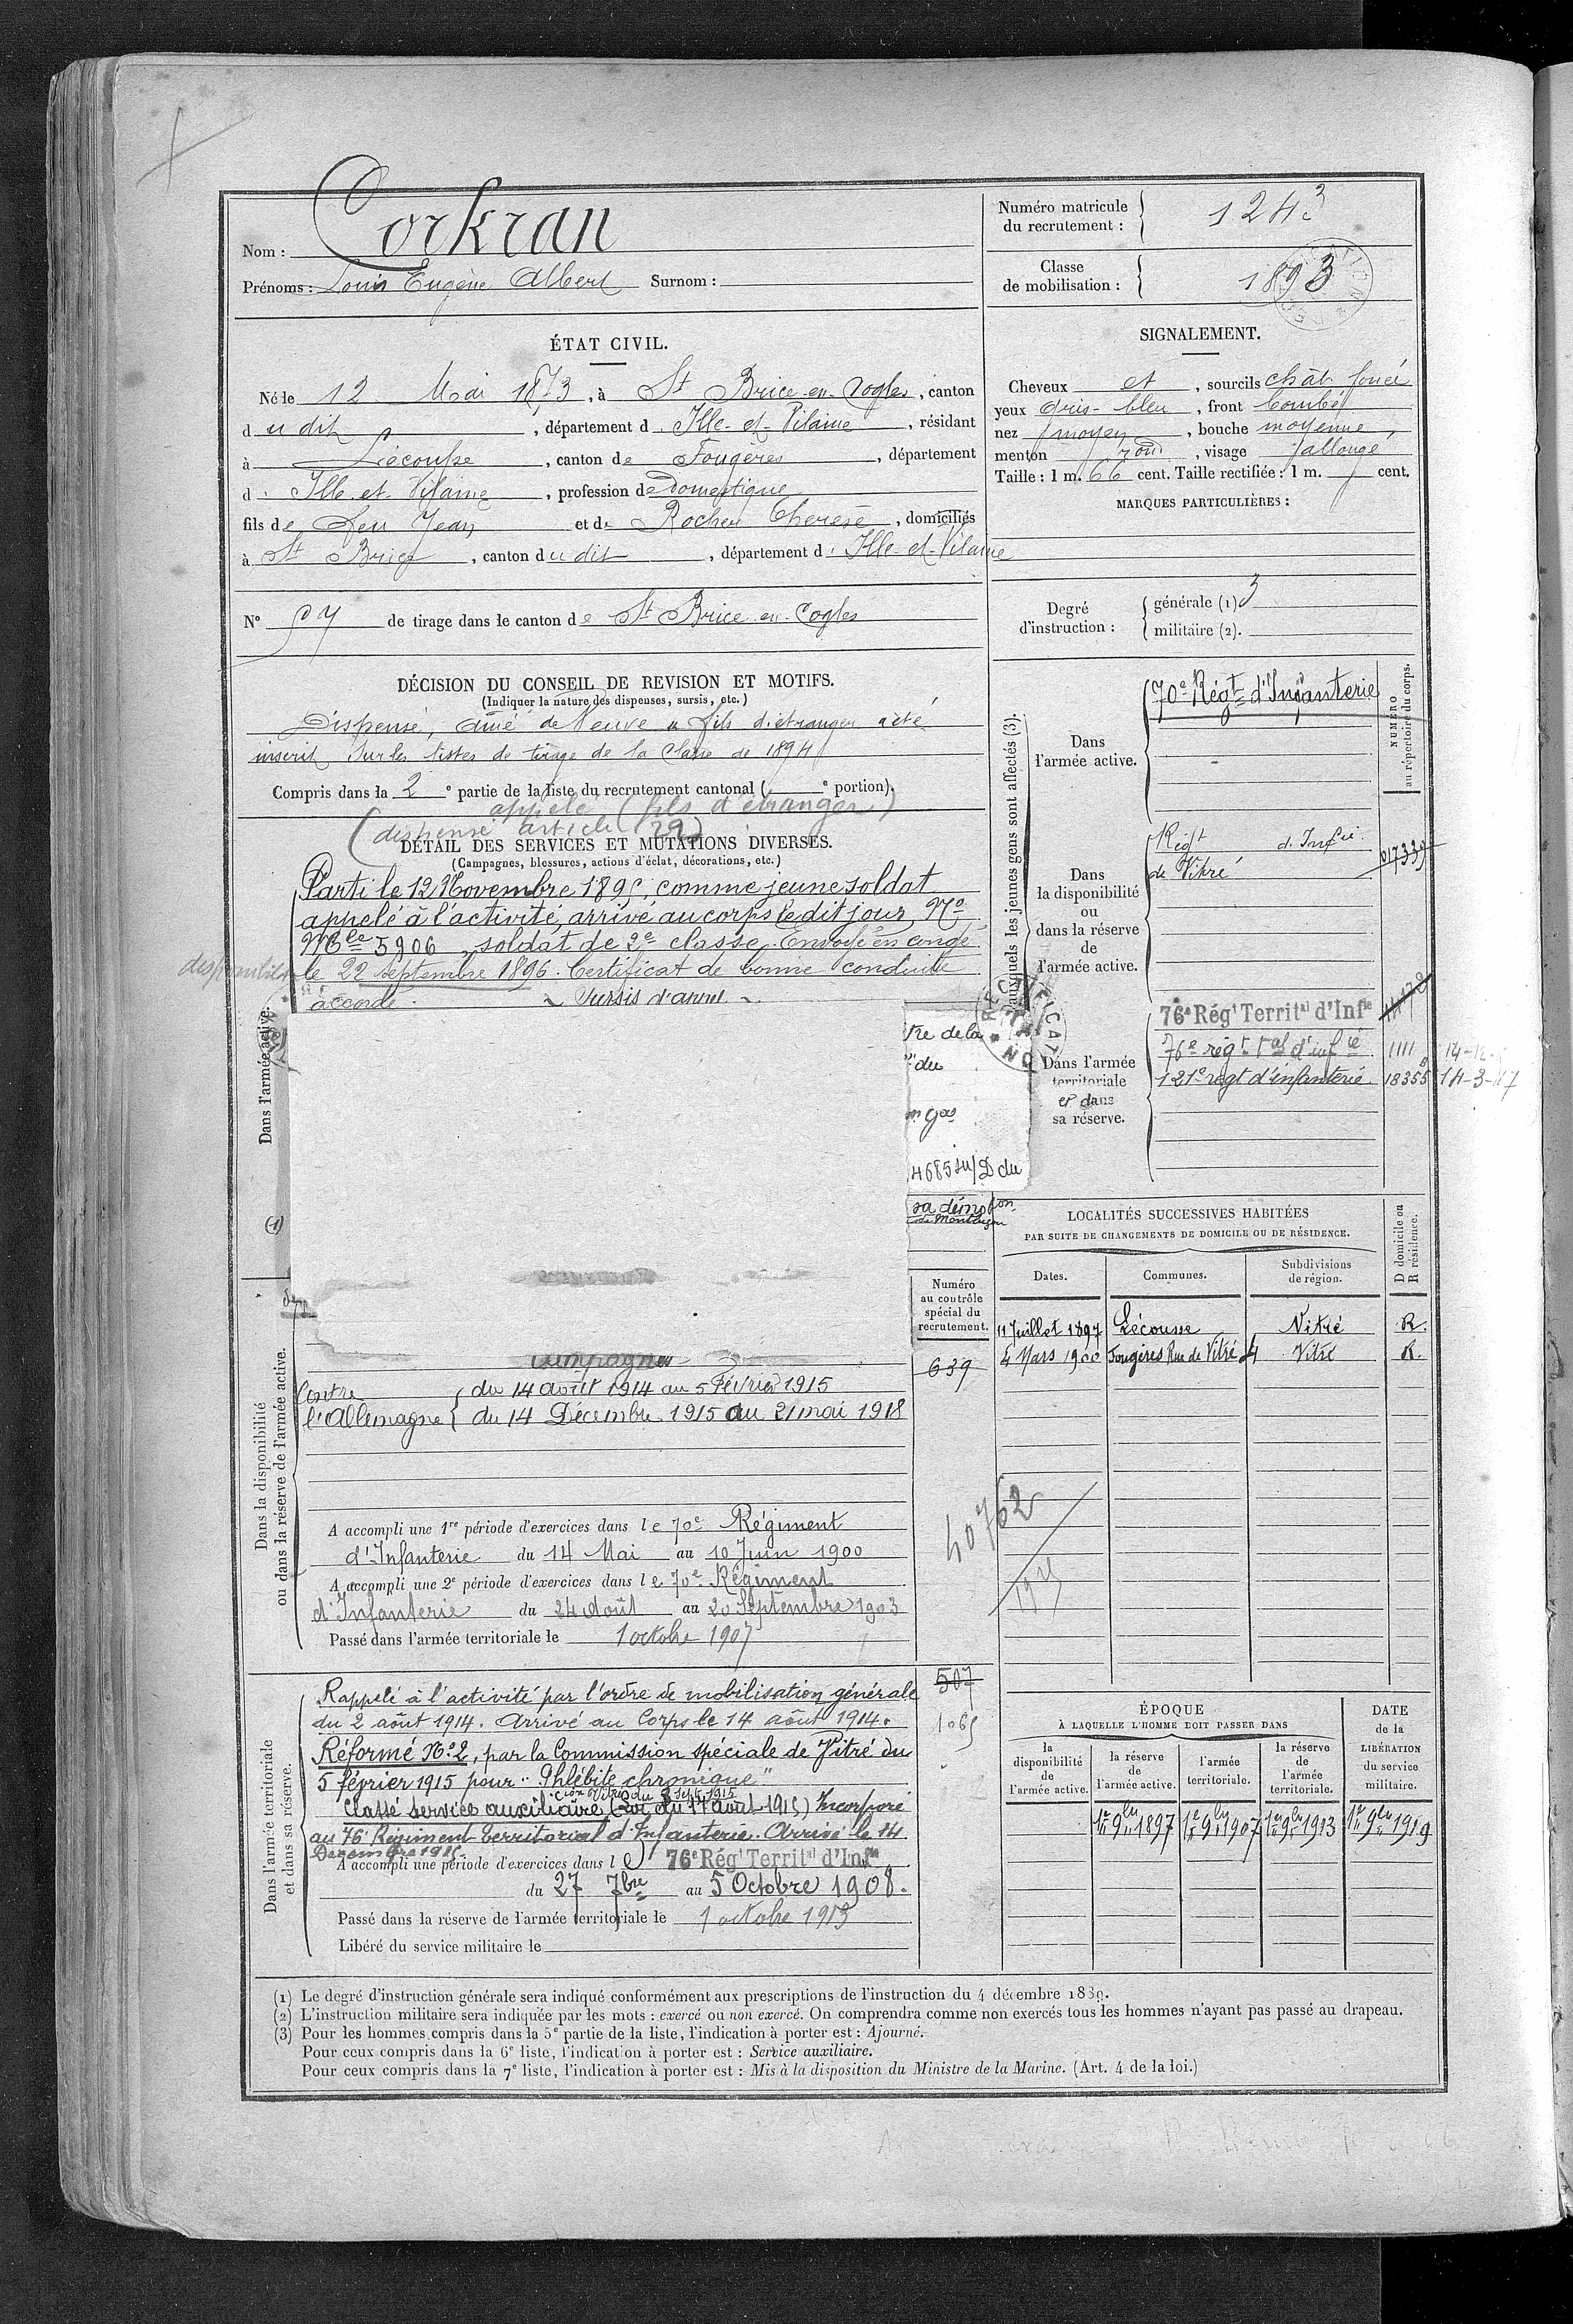 Nom : Corkran
Prénoms : Louis Eugène Albert Surnom :
Numéro matricule du recrutement : 1243
Classe de mobilisation : 1893
ÉTAT CIVIL.
Né le 12 Mai 1873, à St Brice-en-Cogles, canton
du dit, département d'Ille-et-Vilaine, résidant
à Lécousse, canton de Fougères, département
d'Ille-et-Vilaine, profession de Domestique
fils de feu Jean et de Rocher Therese, domiciliés
à St Brice, canton du dit, département d'Ille-et-Vilaine
N° 57 de tirage dans le canton de St Brice-en-Cogles
SIGNALEMENT.
Cheveux et, sourcils chât. foncé
yeux Gris-bleu, front bombé
nez moyen, bouche moyenne,
menton rond, visage allongé
Taille : 1 m. 66 cent. Taille rectifiée : 1 m. cent.
MARQUES PARTICULIÈRES :
Degré d'instruction : générale (1) 3
militaire (2).
DÉCISION DU CONSEIL DE REVISION ET MOTIFS.
(Indiquer la nature des dispenses, sursis, etc.)
Dispensé, aîné de Veuve fils d'étranger a été
inscrit sur les listes de tirage de la Classe de 1894
Compris dans la 2e partie de la liste du recrutement cantonal ( e portion).
appelé (fils d'étranger)
(dispensé article 22)
DÉTAIL DES SERVICES ET MUTATIONS DIVERSES.
(Campagnes, blessures, actions d'éclat, décorations, etc.)
Parti le 12 Novembre 1895, comme jeune soldat
appelé à l'activité, arrivé au corps le dit jour, No
Mle 5906, soldat de 2e classe. Envoyé en congé
le 22 septembre 1896. Certificat de bonne conduite
accordé. ~ Sursis d'appel ~
Dans l'armée active.
(1)
tre de la
du
4685 su/D du
auxquels les jeunes gens sont affectés (3).
NUMÉRO au répertoire du corps.
Dans l'armée active.
70e Régt d'Infanterie
Dans la disponibilité ou dans la réserve de l'armée active.
Régt d'Infie
de Vitré
017339
Dans l'armée territoriale et dans sa réserve.
76e Régt Territal d'Infie
76e régt tal d'infie 1111
121e regt d'infanterie 18355 14-3-17
LOCALITÉS SUCCESSIVES HABITÉES
PAR SUITE DE CHANGEMENTS DE DOMICILE OU DE RÉSIDENCE.
D domicile ou R résidence.
Dates. Communes. Subdivisions de région.
11 Juillet 1897 Lécousse Vitré R.
4 Mars 1900 Fougères Rue de Vitré Vitré R.
Numéro au contrôle spécial du recrutement.
639
Dans la disponibilité ou dans la réserve de l'armée active.
Campagnes
Contre l'Allemagne { du 14 août 1914 au 5 Février 1915
du 14 Décembre 1915 au 21 mai 1918
40762
A accompli une 1re période d'exercices dans le 70e Régiment
d'Infanterie du 14 Mai au 10 Juin 1900
A accompli une 2e période d'exercices dans le 70e Régiment
d'Infanterie du 24 Août au 20 Septembre 1903
Passé dans l'armée territoriale le 1 octobre 1907
Dans l'armée territoriale et dans sa réserve.
507
1065
Rappelé à l'activité par l'ordre de mobilisation générale
du 2 août 1914. Arrivé au Corps le 14 août 1914.
Réformé No 2, par la Commission spéciale de Vitré du
5 février 1915 pour "Phlébite chronique"
Classé service auxiliaire (Loi du 17 août 1915) Incorporé
au 76e Régiment Territorial d'Infanterie. Arrivé le 14
Décembre 1915.
A accompli une période d'exercices dans le 76e Régt Territal d'Infie
du 27 7bre au 5 Octobre 1908.
Passé dans la réserve de l'armée territoriale le 1 octobre 1913
Libéré du service militaire le
ÉPOQUE
À LAQUELLE L'HOMME DOIT PASSER DANS
DATE de la LIBÉRATION du service militaire.
la disponibilité de l'armée active.
la réserve de l'armée active.
l'armée territoriale.
la réserve de l'armée territoriale.
1er 9bre 1897 1er 9bre 1907 1er 9bre 1913 1er 9bre 1919
(1) Le degré d'instruction générale sera indiqué conformément aux prescriptions de l'instruction du 4 décembre 1889.
(2) L'instruction militaire sera indiquée par les mots : exercé ou non exercé. On comprendra comme non exercés tous les hommes n'ayant pas passé au drapeau.
(3) Pour les hommes compris dans la 5e partie de la liste, l'indication à porter est : Ajourné.
Pour ceux compris dans la 6e liste, l'indication à porter est : Service auxiliaire.
Pour ceux compris dans la 7e liste, l'indication à porter est : Mis à la disposition du Ministre de la Marine. (Art. 4 de la loi.)